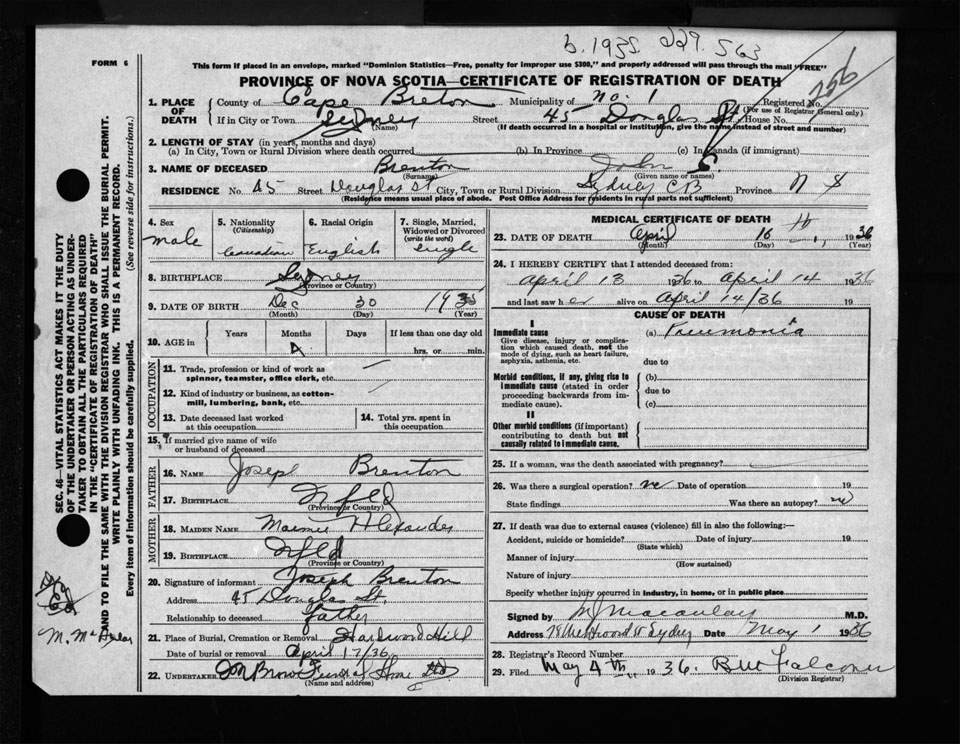 b. 1935 229.563
256
FORM 6
This form if placed in an envelope, marked "Dominion Statistics—Free, penalty for improper use $300," and properly addressed will pass through the mail "FREE"
PROVINCE OF NOVA SCOTIA—CERTIFICATE OF REGISTRATION OF DEATH
1. PLACE OF DEATH
County of Cape Breton Municipality of No. 1 Registered No.
(For use of Registrar General only)
If in City or Town Sydney Street 45 Douglas St House No.
(Name) (If death occurred in a hospital or institution, give the name instead of street and number)
2. LENGTH OF STAY (in years, months and days)
(a) In City, Town or Rural Division where death occurred (b) In Province (c) In Canada (if immigrant)
3. NAME OF DECEASED Brenton John S.
(Surname) (Given name or names)
RESIDENCE No. 45 Street Douglas St City, Town or Rural Division Sydney CB Province N S
(Residence means usual place of abode. Post Office Address for residents in rural parts not sufficient)
4. Sex
male
5. Nationality
(Citizenship)
Canadian
6. Racial Origin
English
7. Single, Married, Widowed or Divorced
(write the word)
single
8. BIRTHPLACE Sydney
(Province or Country)
9. DATE OF BIRTH Dec 30 1935
(Month) (Day) (Year)
10. AGE in
Years Months Days If less than one day old
4
hrs. or min.
OCCUPATION
11. Trade, profession or kind of work as spinner, teamster, office clerk, etc.
12. Kind of industry or business, as cotton-mill, lumbering, bank, etc.
13. Date deceased last worked at this occupation
14. Total yrs. spent in this occupation
15. If married give name of wife or husband of deceased
FATHER
16. NAME Joseph Brenton
17. BIRTHPLACE Nfld
(Province or Country)
MOTHER
18. MAIDEN NAME Mamie Alexander
19. BIRTHPLACE Nfld
(Province or Country)
20. Signature of informant Joseph Brenton
Address 45 Douglas St.
Relationship to deceased father
21. Place of Burial, Cremation or Removal Hardwood Hill
Date of burial or removal April 17/36
22. UNDERTAKER Funeral Home Ltd
(Name and address)
MEDICAL CERTIFICATE OF DEATH
23. DATE OF DEATH April 16 1936
(Month) (Day) (Year)
24. I HEREBY CERTIFY that I attended deceased from:
April 13 1936 to April 14 1936
and last saw h er alive on April 14/36 19
CAUSE OF DEATH
I
Immediate cause
Give disease, injury or complication which caused death, not the mode of dying, such as heart failure, asphyxia, asthenia, etc.
(a) Pneumonia
due to
Morbid conditions, if any, giving rise to immediate cause (stated in order proceeding backwards from immediate cause).
(b)
due to
(c)
II
Other morbid conditions (if important) contributing to death but not causally related to immediate cause.
25. If a woman, was the death associated with pregnancy?
26. Was there a surgical operation? no Date of operation 19
State findings Was there an autopsy? no
27. If death was due to external causes (violence) fill in also the following:—
Accident, suicide or homicide? Date of injury 19
(State which)
Manner of injury
(How sustained)
Nature of injury
Specify whether injury occurred in industry, in home, or in public place
Signed by Macaulay M.D.
Address Sydney Date May 1 1936
28. Registrar's Record Number
29. Filed May 4th 1936.
(Division Registrar)
SEC. 46—VITAL STATISTICS ACT MAKES IT THE DUTY
OF THE UNDERTAKER OR PERSON ACTING AS UNDER-
TAKER TO OBTAIN ALL THE PARTICULARS REQUIRED
IN THE "CERTIFICATE OF REGISTRATION OF DEATH"
AND TO FILE THE SAME WITH THE DIVISION REGISTRAR WHO SHALL ISSUE THE BURIAL PERMIT.
WRITE PLAINLY WITH UNFADING INK. THIS IS A PERMANENT RECORD.
Every item of information should be carefully supplied. (See reverse side for instructions.)